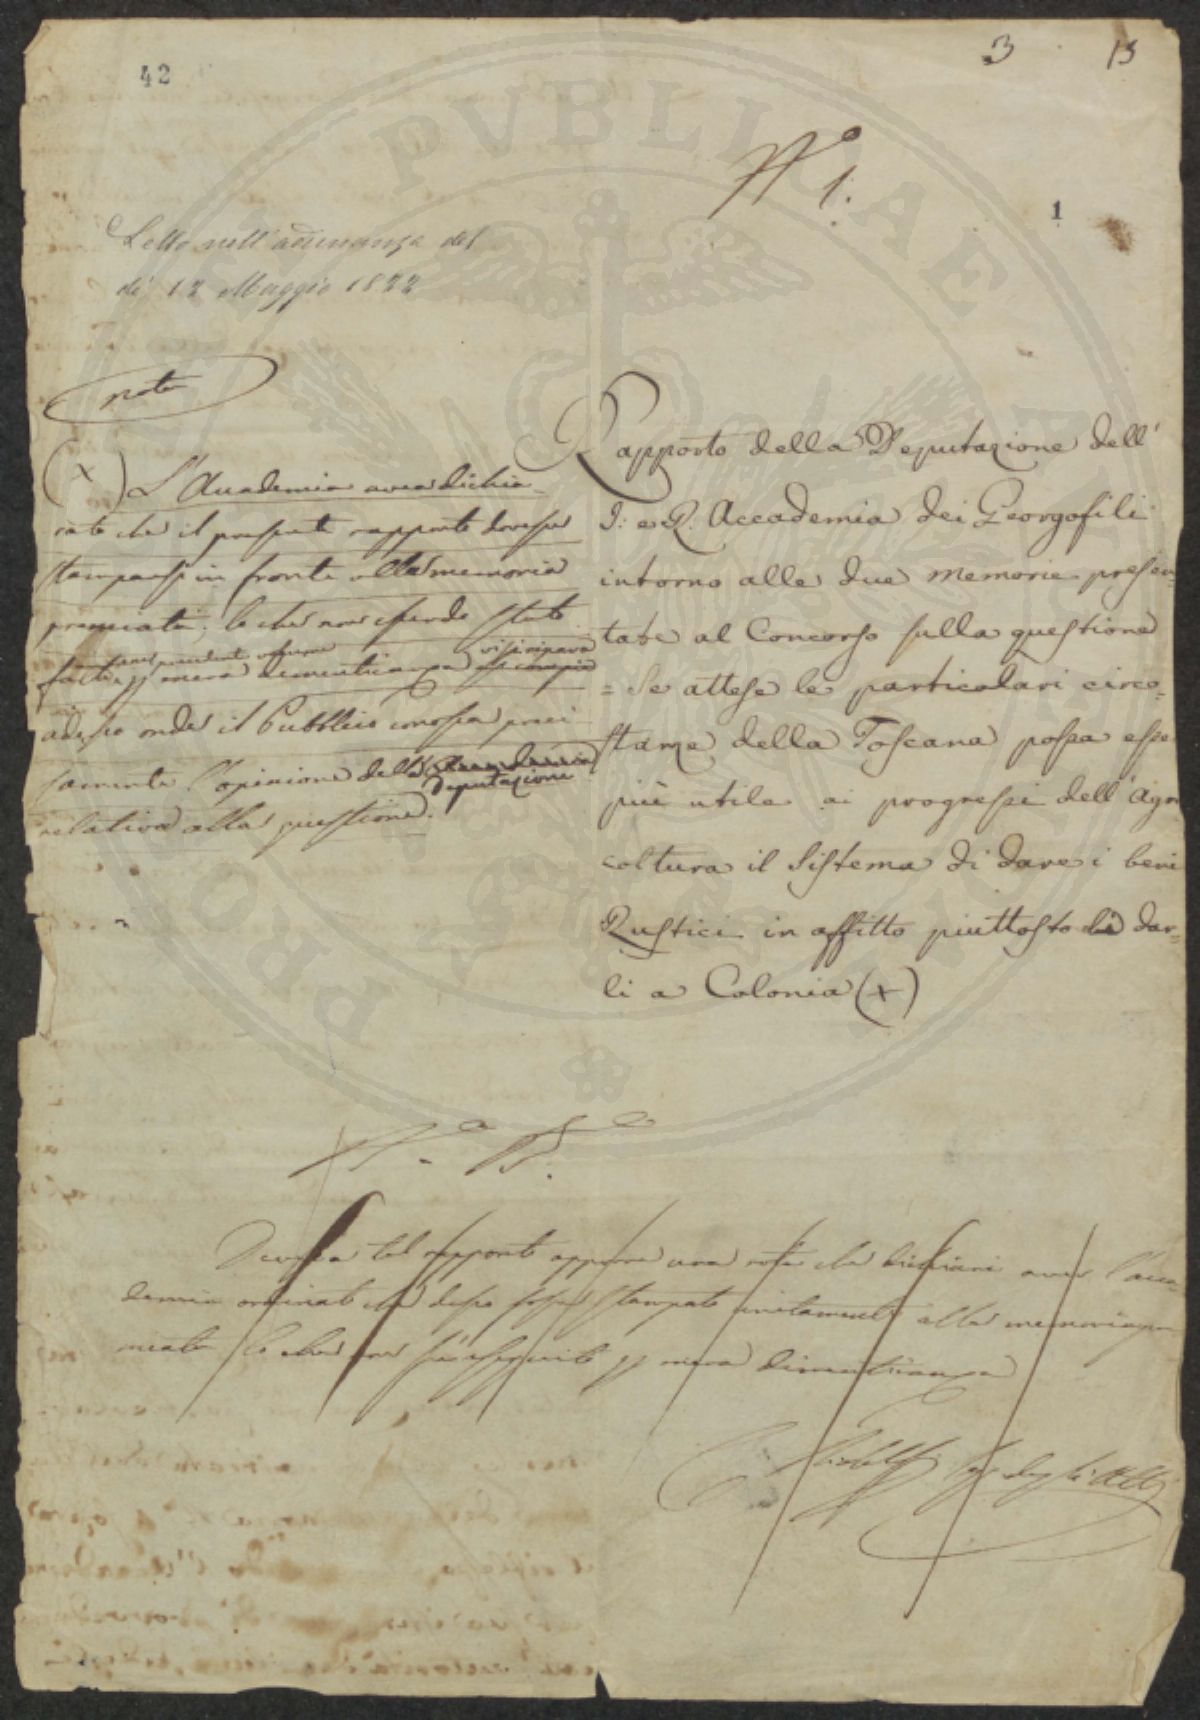 42
3
13
N.º 1.
1
Letto nell'adunanza del
dì 12 Maggio 1822
nota
(x) L'Accademia avea dichia-
rato che il presente rapporto dovesse
stamparsi in fronte alla memoria
premiata; lo che non essendo stato
fatto per mera dimenticanza
adesso onde il Pubblico conosca preci-
samente l'opinione della Accademia
Deputazione
relativa alla questione.
Rapporto della Deputazione dell'
I: e R. Accademia dei Georgofili
intorno alle due memorie presen
tate al Concorso sulla questione
= Se attese le particolari circo-
stanze della Toscana possa esse
più utile ai progressi dell'Agri
coltura il Sistema di dare i beni
Rustici in affitto piuttosto di dar-
li a Colonia (x)
tal rapporto apporre una nota che dichiari aver l'acca-
demia ordinato che desso fosse stampato unitamente alla memoria pre
miata lo che non fu eseguito per mera dimenticanza